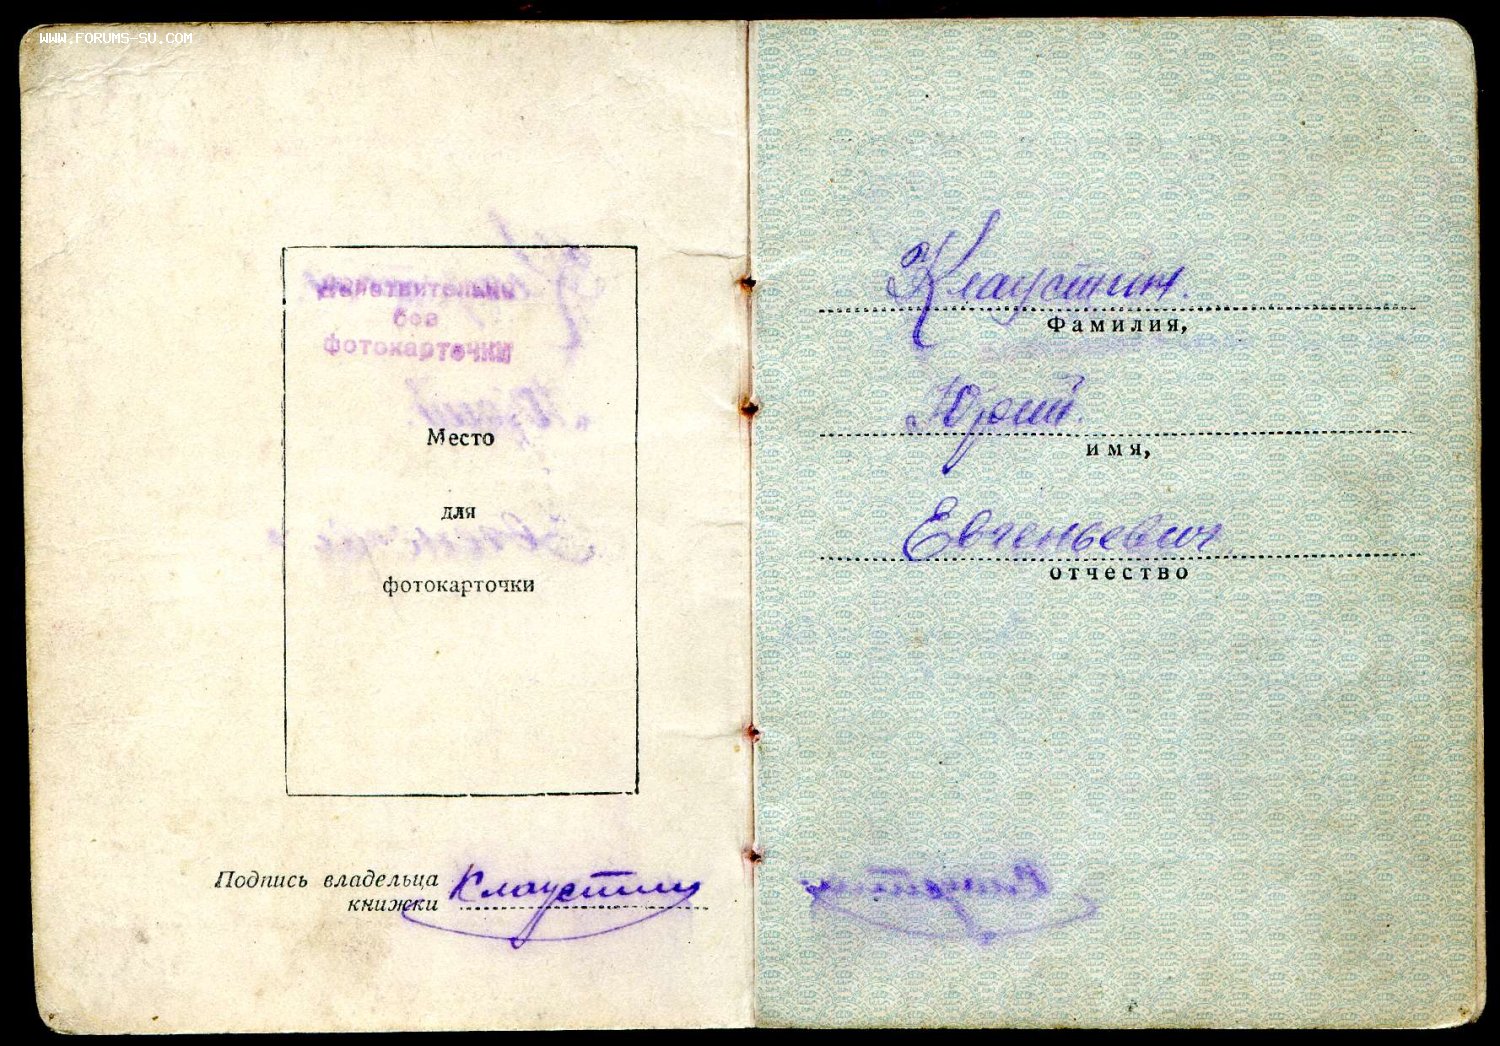 WWW.FORUMS-SU.COM
Действительно
без
фотокарточки
Место
для
фотокарточки
Подпись владельца
книжки Клаустин
Клаустин
Фамилия,
Юрий
имя,
Евгеньевич
отчество